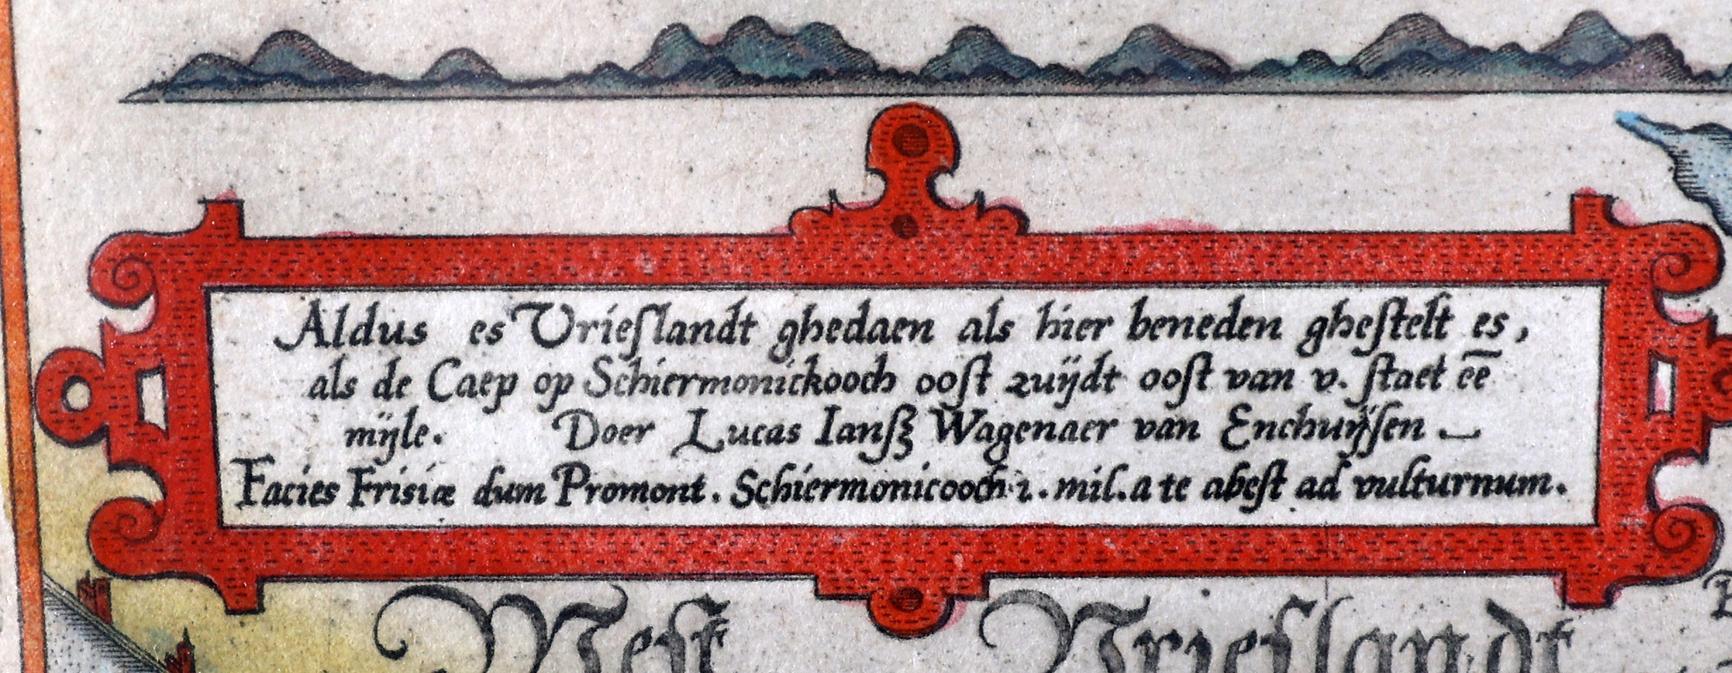 Aldus es Vrieſlandt ghedaen als hier beneden gheſtelt es,
als de Caep op Schiermonickooch ooſt zuijdt ooſt van v. ſtaet eē
mijle. Doer Lucas Ianſz Wagenaer van Enchuijſen
Facies Frisiæ dum Promont. Schiermonicooch 1. mil. a te abeſt ad vulturnum.
Weſt Vrieſlandt